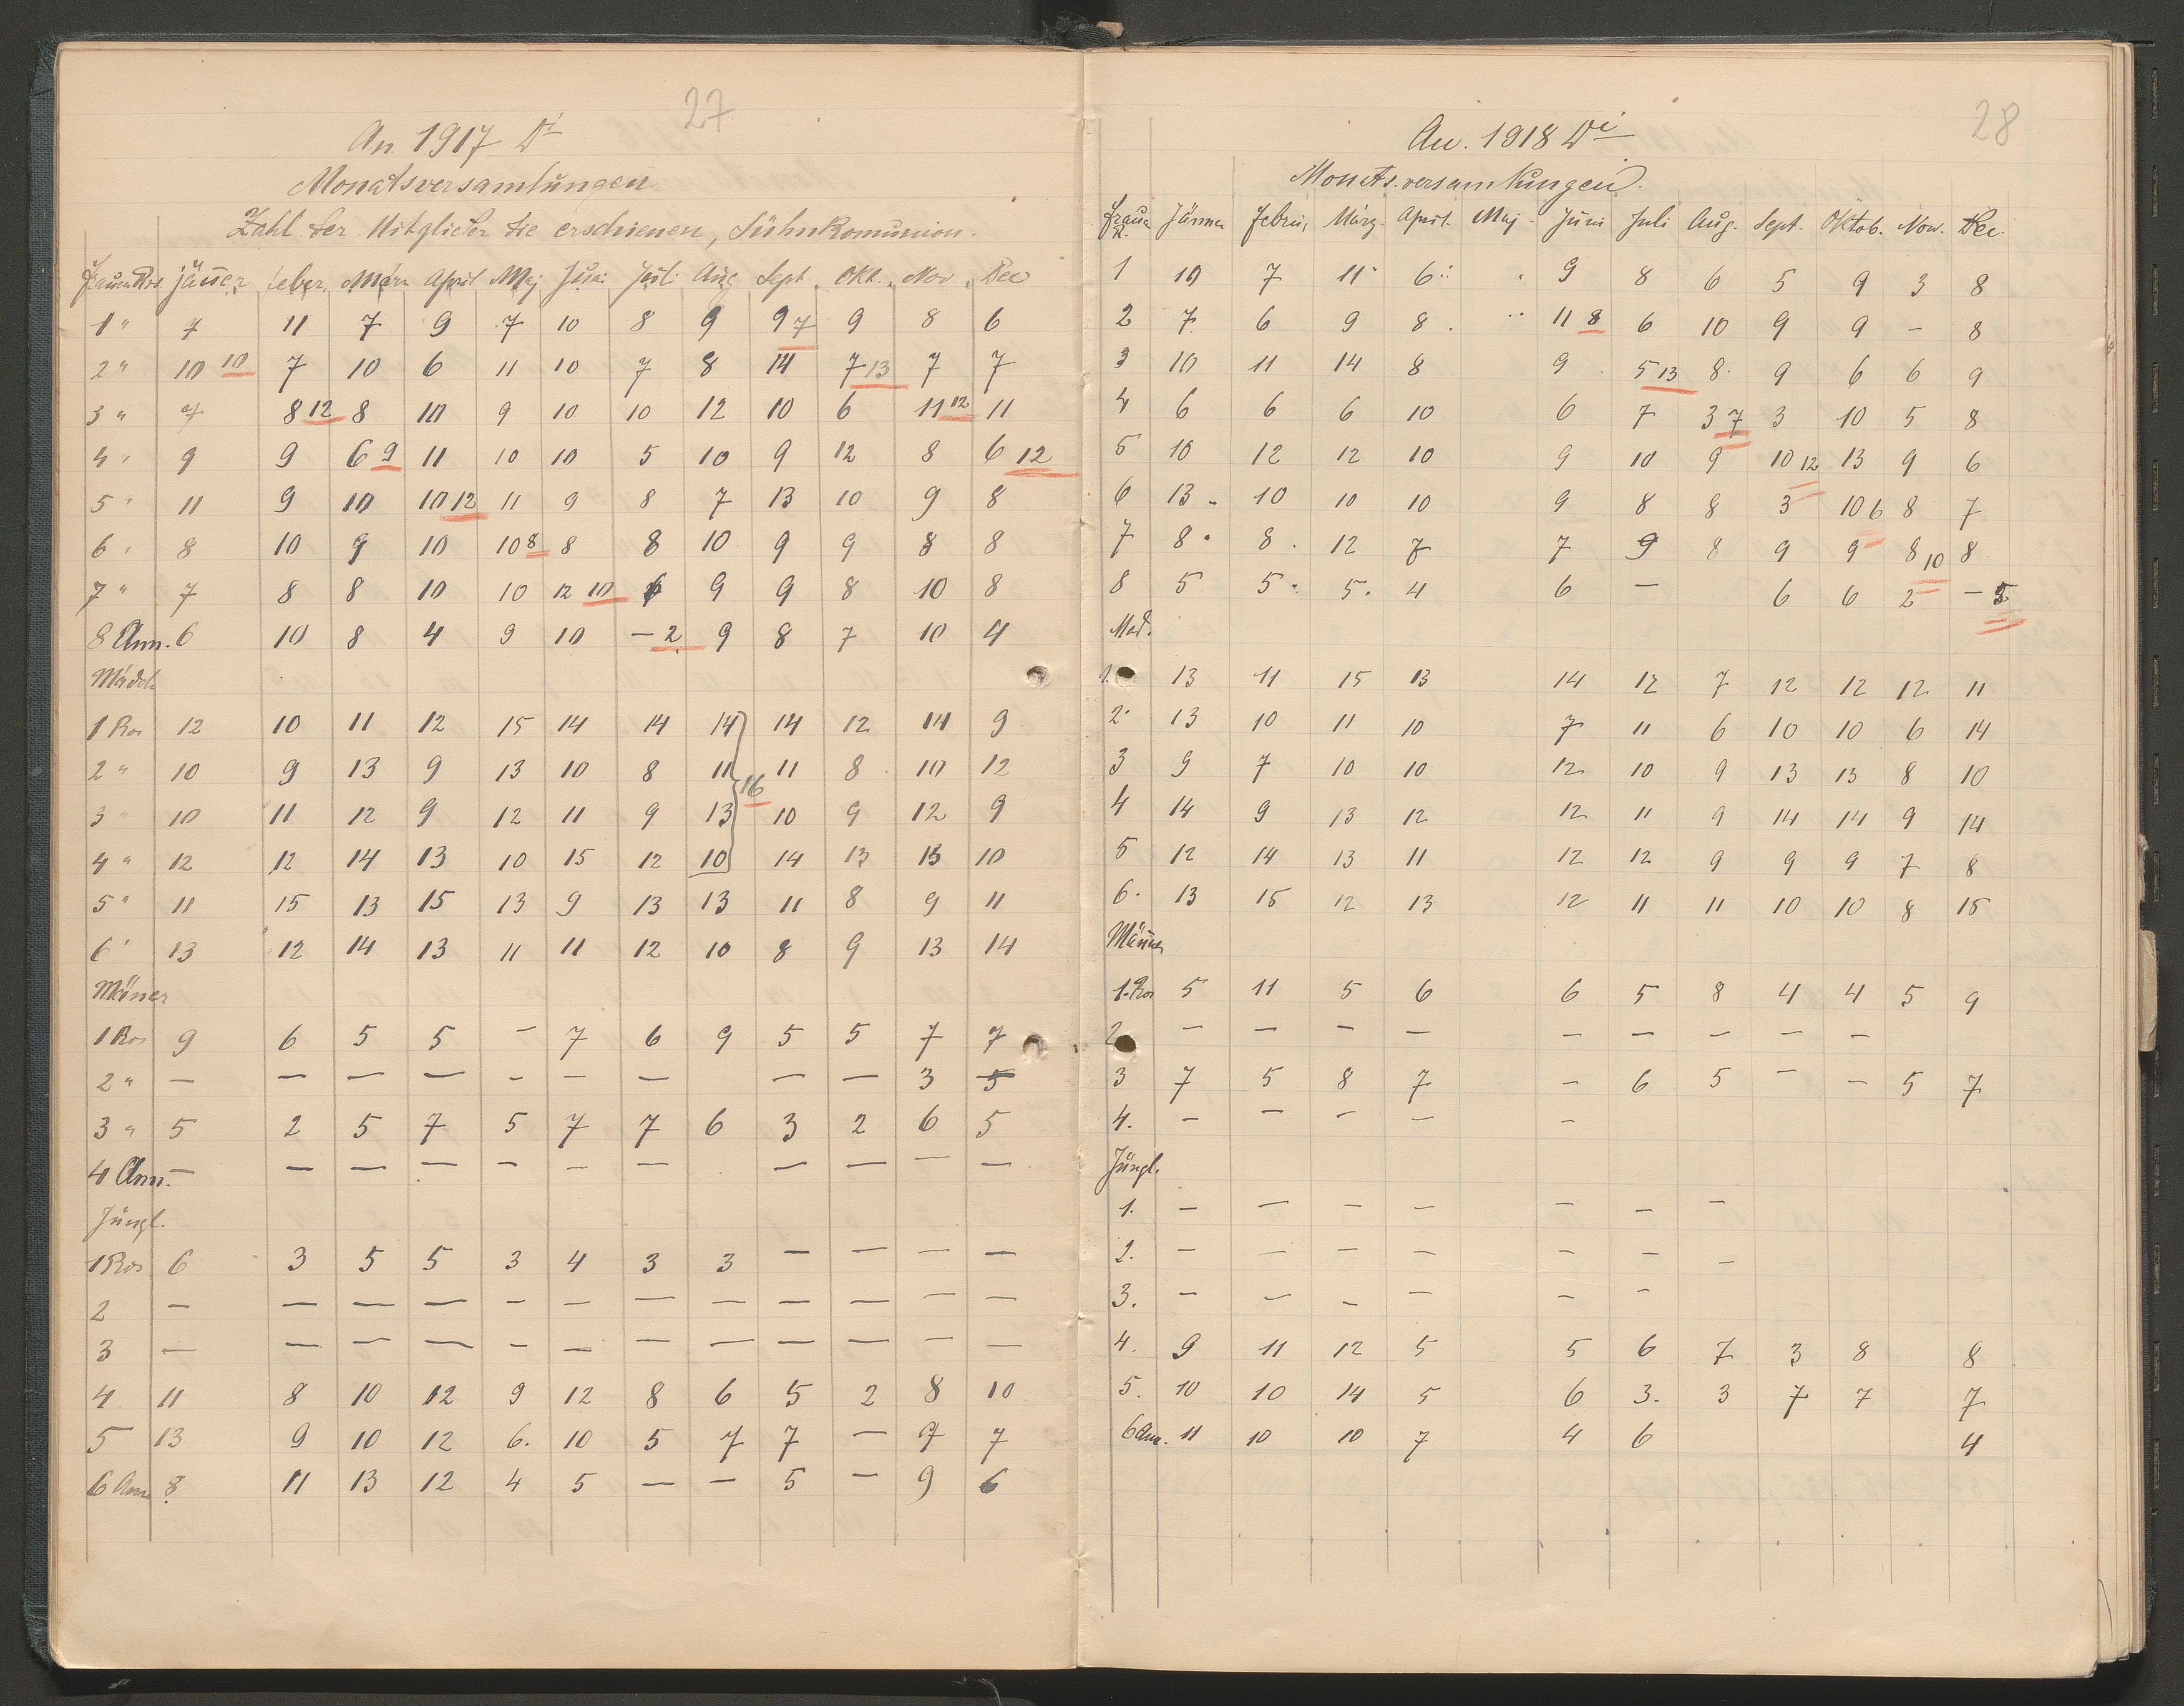 27
An 1917 Di
Monatsversamlungen
Zahl der Mitglieder die erschienen, Sühnkomunion.
Frauen Ros. Jäner Feber. März April Maj Juni Juli Aug Sept. Okt. Nov. Dec
1 " 7 11 7 9 7 10 8 9 9 7 9 8 6
2 " 10 10 7 10 6 11 10 7 8 14 7 13 7 7
3 " 7 8 12 8 10 9 10 10 12 10 6 11 12 11
4 " 9 9 6 9 11 10 10 5 10 9 12 8 6 12
5 " 11 9 10 10 12 11 9 8 7 13 10 9 8
6 " 8 10 9 10 10 8 8 8 10 9 9 8 8
7 " 7 8 8 10 10 12 10 6 9 9 8 10 8
8 Ann. 6 10 8 4 9 10 — 2 9 8 7 10 4
Mädch
1 Ros 12 10 11 12 15 14 14 14 14 12 14 9
2 " 10 9 13 9 13 10 8 11 11 8 10 12
16
3 " 10 11 12 9 12 11 9 13 10 9 12 9
4 " 12 12 14 13 10 15 12 10 14 13 13 10
5 " 11 15 13 15 13 9 13 13 11 8 9 11
6 " 13 12 14 13 11 11 12 10 8 9 13 14
Mäner
1 Ros 9 6 5 5 — 7 6 9 5 5 7 7
2 " — — — — — — — — — 3 5
3 " 5 2 5 7 5 7 7 6 3 2 6 5
4 Ann. — — — — — — — — — — —
Jüngl.
1 Ros 6 3 5 5 3 4 3 3 — — — —
2 — — — — — — — — — — — —
3 — — — — — — — — — — — —
4 11 8 10 12 9 12 8 6 5 2 8 10
5 13 9 10 12 6. 10 5 7 7 — 9 7
6 Ann 8 11 13 12 4 5 — — 5 — 9 6
28
An. 1918 Di
Monats.versamlungen.
Frauen R. Jänner Febru. März. April. Maj. Juni Juli Aug. Sept. Oktob. Nov. Dec.
1 10 7 11 6 9 8 6 5 9 3 8
2 7 6 9 8 11 8 6 10 9 9 — 8
3 10 11 14 8 9 5 13 8 9 6 6 9
4 6 6 6 10 6 7 3 7 3 10 5 8
5 10 12 12 10 9 10 9 10 12 13 9 6
6 13 10 10 10 9 8 8 3 10 6 8 7
7 8 8 12 7 7 9 8 9 9 8 10 8
8 5 5 5 4 6 — 6 6 2 — 5
Mäd.
1. 13 11 15 13 14 12 7 12 12 12 11
2. 13 10 11 10 7 11 6 10 10 6 14
3 9 7 10 10 12 10 9 13 13 8 10
4 14 9 13 12 12 11 9 14 14 9 14
5 12 14 13 11 12 12 9 9 9 7 8
6. 13 15 12 13 12 11 11 10 10 8 15
Männer
1. Ros 5 11 5 6 6 5 8 4 4 5 9
2 — — — — — — — — —
3 7 5 8 7 — 6 5 — — 5 7
4. — — — — —
Jüngl.
1. — — — — — — —
2. — — — — — — —
3. — — — — — —
4. 9 11 12 5 5 6 7 3 8 8
5. 10 10 14 5 6 3. 3 7 7 7
6 Ann. 11 10 10 7 4 6 4